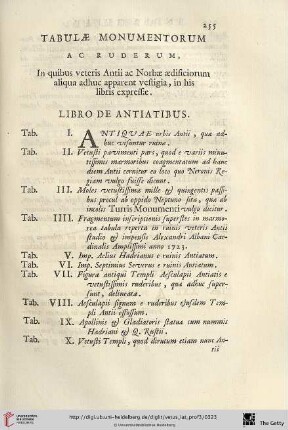 255
TABULÆ MONUMENTORUM
AC RUDERUM,
In quibus veteris Antii ac Norbæ ædificiorum
aliqua adhuc apparent vestigia, in his
libris expressæ.
LIBRO DE ANTIATIBUS.
Tab. I. ANTIQUAE urbis Antii, qua ad-
huc visuntur ruinæ.
Tab. II. Vetusti pavimenti pars, quod e variis minu-
tissimis marmoribus coagmentatum ad hanc
diem Antii cernitur ea loco qua Neronis Re-
giam vulgo fuisse dicunt.
Tab. III. Moles vetustissima mille & quingentis passi-
bus procul ab oppido Neptuno sita, quæ ab
incolis Turris Monumenti vulgo dicitur.
Tab. IIII. Fragmentum inscriptionis superstes in marmo-
rea tabula reperta in ruinis veteris Antii
studio & impensis Alexandri Albani Car-
dinalis Amplissimi anno 1723.
Tab. V. Imp. Aelius Hadrianus e ruinis Antiatum.
Tab. VI. Imp. Septimius Severus e ruinis Antiatum.
Tab. VII. Figura antiqui Templi Aesculapii Antiatis e
vetustissimis ruderibus, quæ adhuc super-
sunt, delineata.
Tab. VIII. Aesculapii signum e ruderibus ejusdem Tem-
pli Antii effossum.
Tab. IX. Apollinis & Gladiatoris statuæ cum nummis
Hadriani & Q. Rustii.
Tab. X. Vetusti Templi, quod dirutum etiam nunc An-
tii
http://digi.ub.uni-heidelberg.de/diglit/vetus_lat_prof3/0323
© Universitätsbibliothek Heidelberg
UNIVERSITÄTS-
BIBLIOTHEK
HEIDELBERG
The Getty